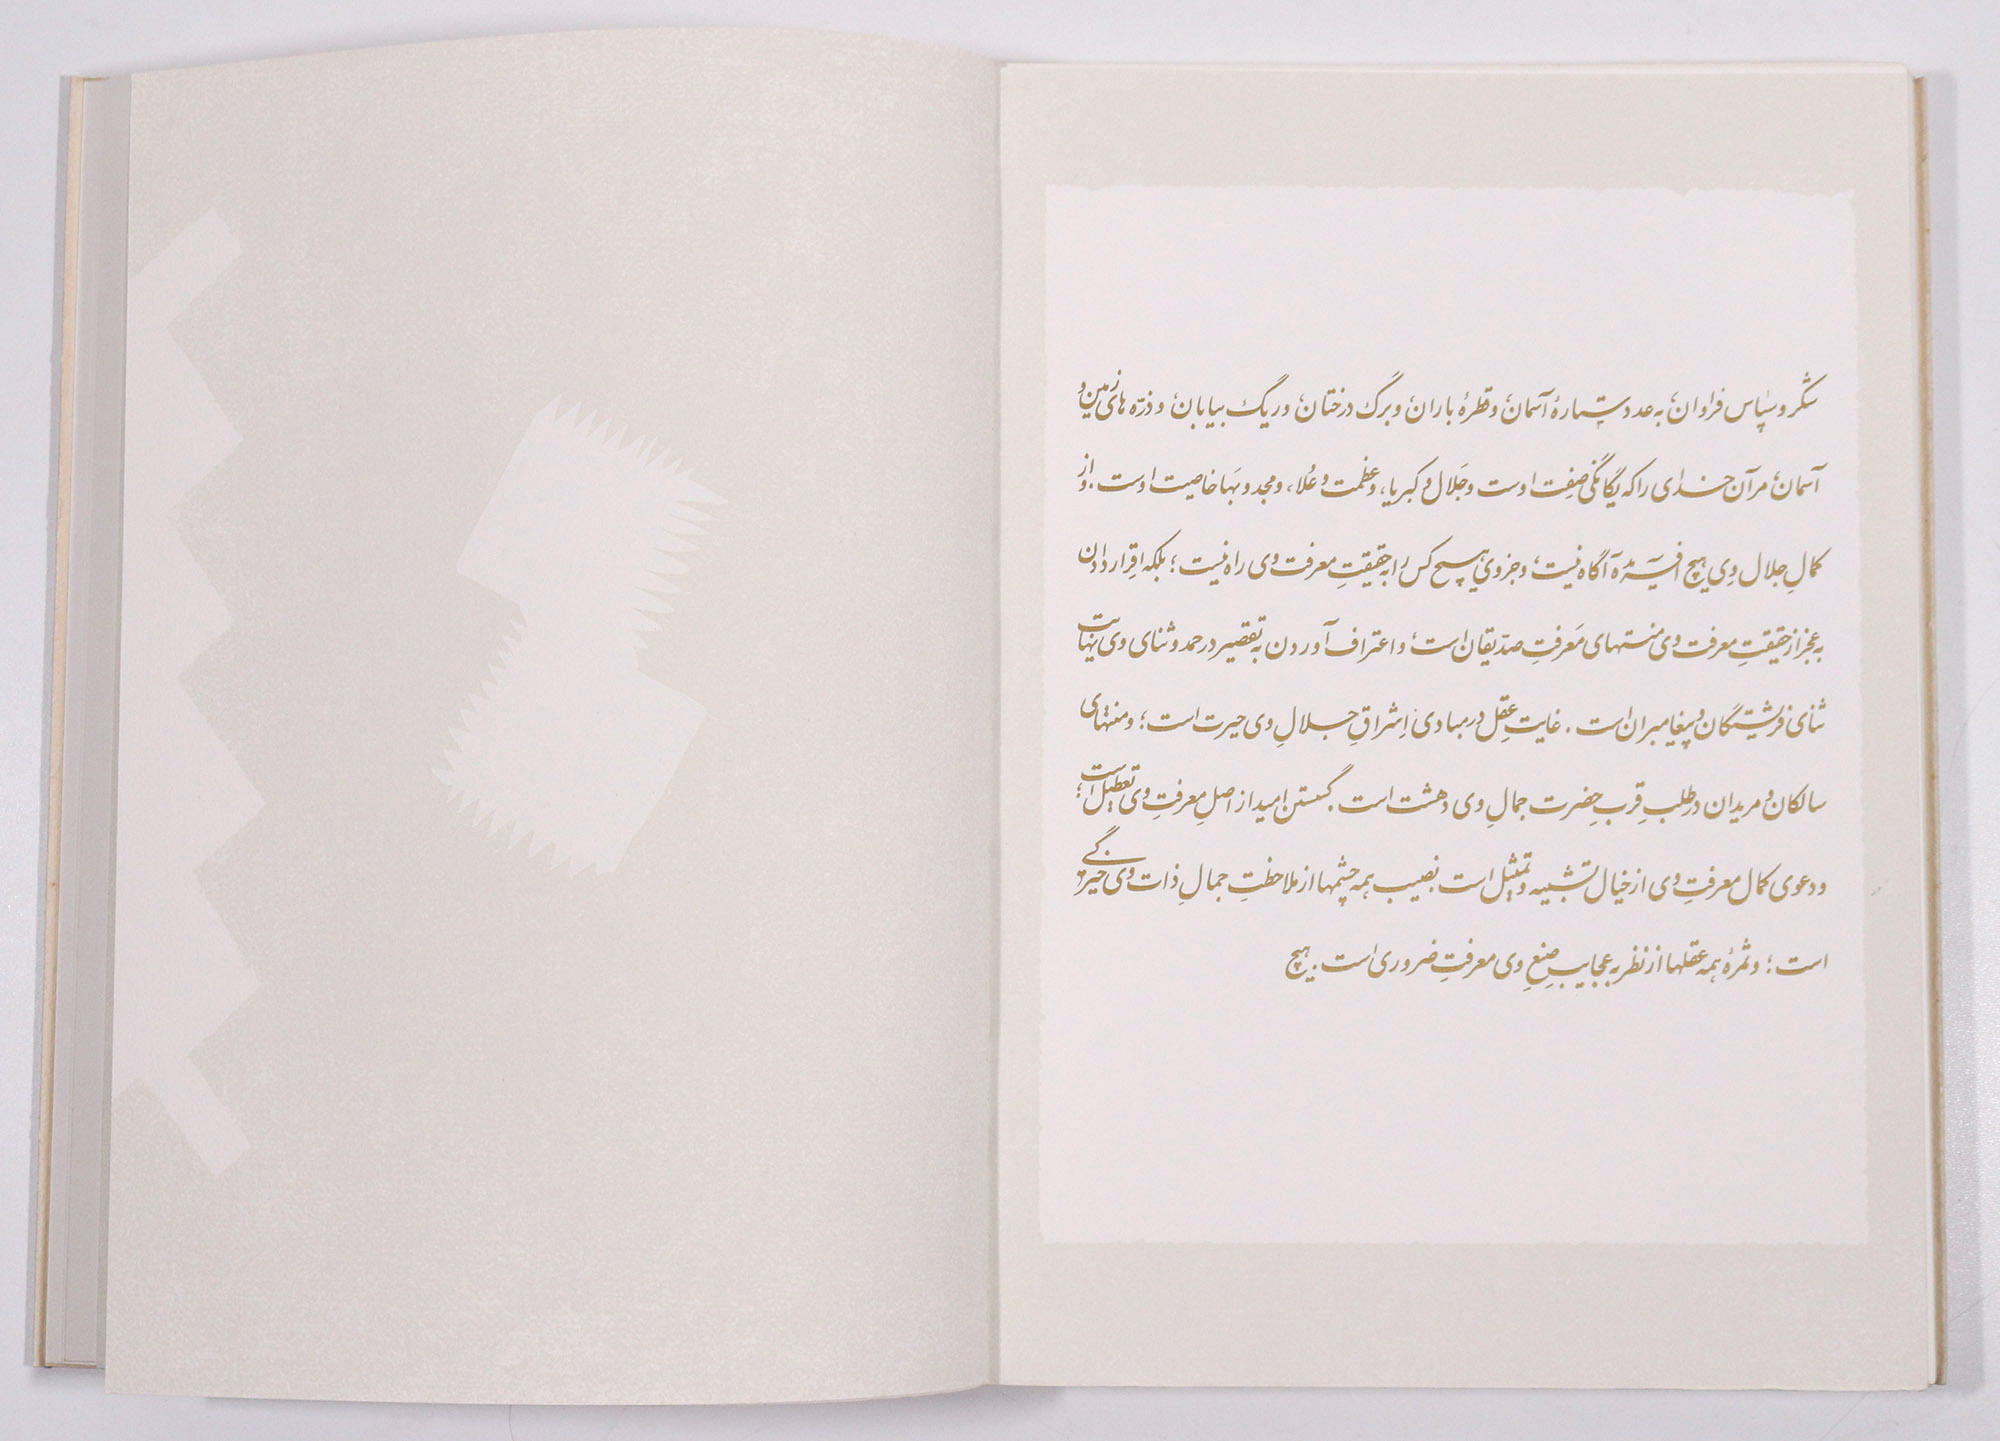 شکر و سپاس فراوان، به عدد ستارهٔ آسمان، و قطرهٔ باران، و برگ درختان، و ریگ بیابان، و ذرّه های زمین و
آسمان، مر آن خدای را که یگانگی صِفت اوست و جَلال و کبریا، و عظمت و عُلا، و مجد و بَها خاصیت اوست. و از
کمالِ جلال وی هیچ آفریده آگاه نیست، و جز وی هیچ کس را به حقیقتِ معرفت وی راه نیست؛ بلکه اقرار دادن
به عجز از حقیقتِ معرفت وی منتهای مَعرفتِ صدّیقان است، و اعتراف آوردن به تقصیر در حمد و ثنای وی نهایت
ثنای فرشتگان و پیغامبران است. غایتِ عقل در مبادیِ اِشراقِ جلالِ وی حیرت است؛ و منتهای
سالکان و مریدان در طلبِ قربِ حضرت جمالِ وی دهشت است. گسستن امید از اصلِ معرفتِ وی تعطیل است؛
و دعوی کمال معرفتِ وی از خیال تشبیه و تمثیل است. نصیب همه چشمها از ملاحظتِ جمالِ ذات وی خیرگی
است؛ و ثمرهٔ همه عقلها از نظر به عجایبِ صُنعِ وی معرفتِ ضروری است. هیچ